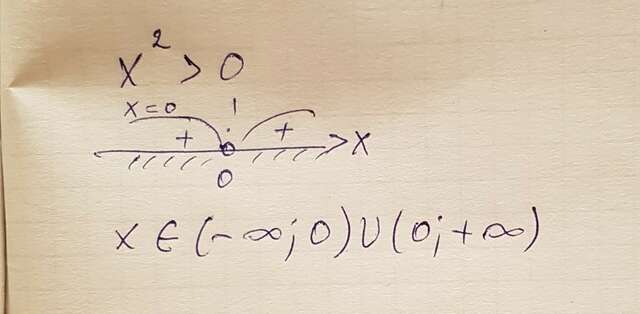 x² > 0
x=0
+ + x
0
x ∈ (-∞; 0) ∪ (0; +∞)